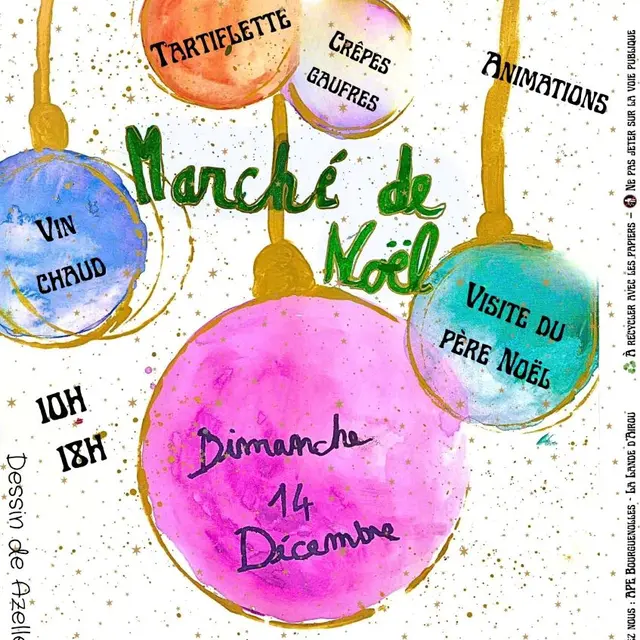 Tartiflette
Crêpes
gaufres
Animations
Marché de
Noël
Vin
chaud
Visite du
père Noël
10h
18h
Dimanche
14
Décembre
Dessin de Azelle
nous : APE Bourguenolles - La Lande d'Airou
A recycler avec les papiers - Ne pas jeter sur la voie publique